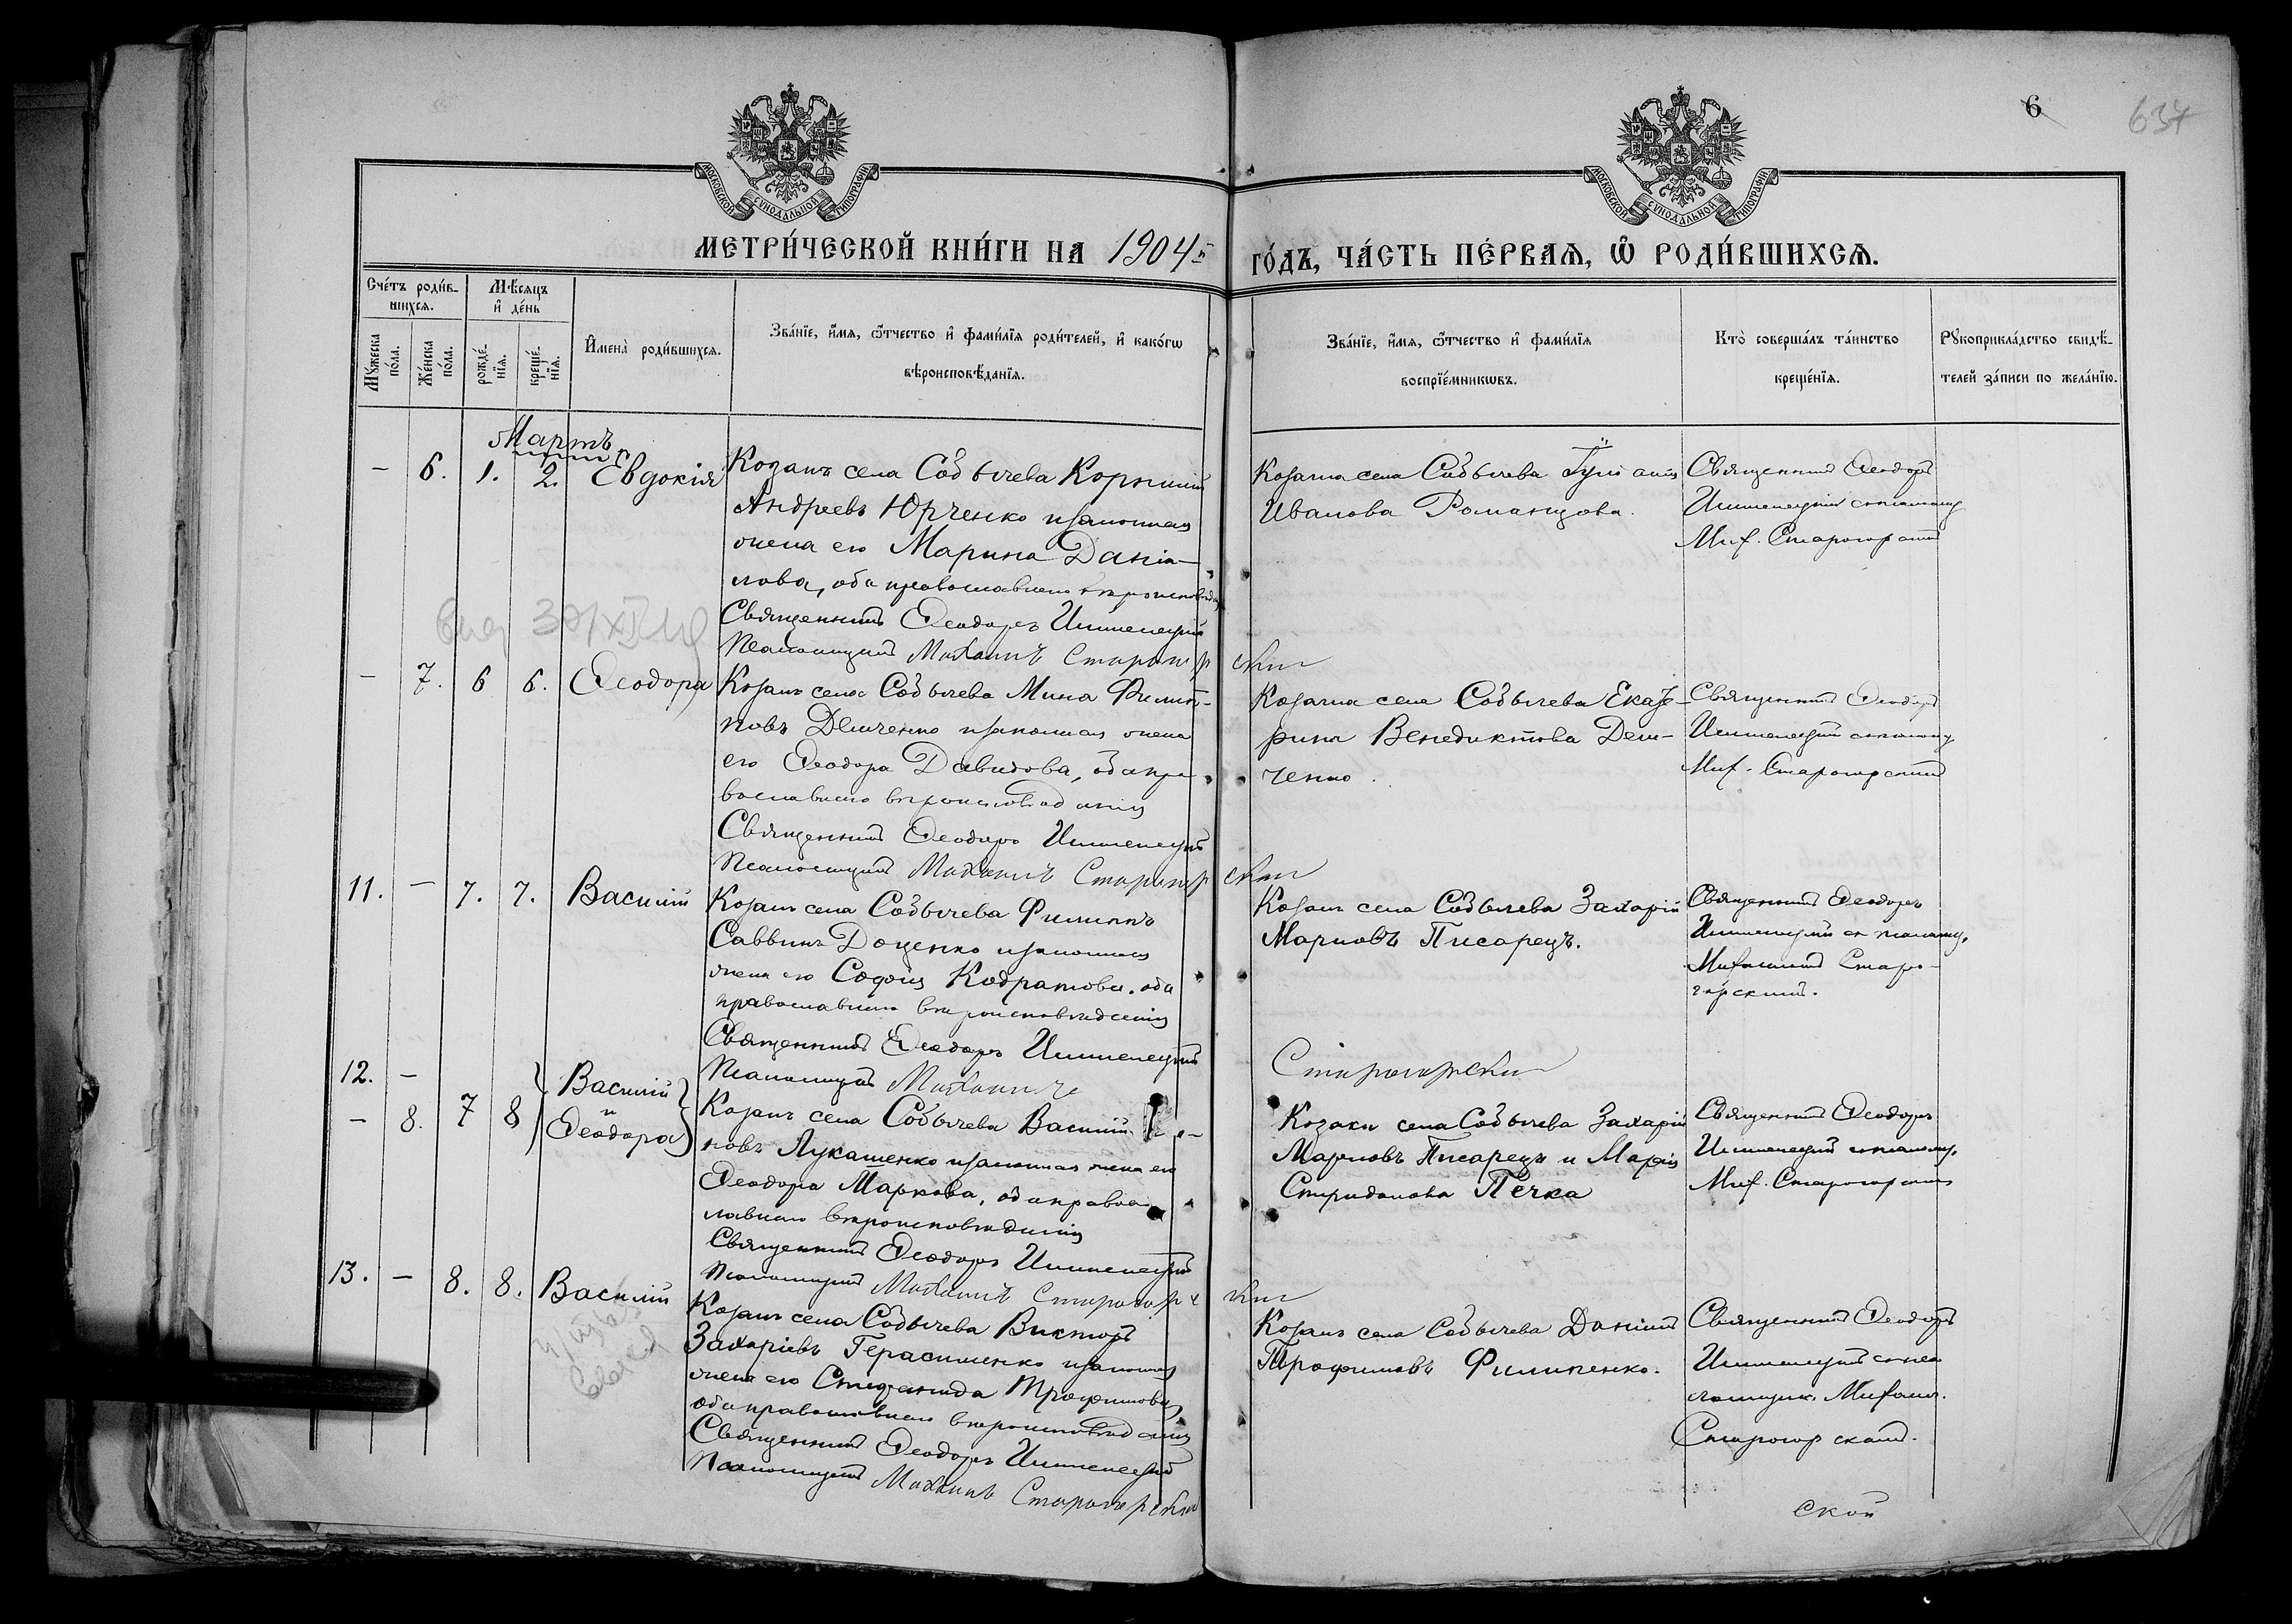 6
637
МОСКОВСКОЙ СУНОДАЛЬНОЙ ТИПОГРАФІИ
МОСКОВСКОЙ СУНОДАЛЬНОЙ ТИПОГРАФІИ
МЕТРИ́ЧЕСКОЙ КНИ́ГИ НА 1904 ГО́ДЪ, ЧА́СТЬ ПЕ́РВАѦ, Ѡ РОДИ́ВШИХСѦ.
Сче́тъ роди́в-
шихсѧ.
Мѣ́сѧцъ
и҆ де́нь
Мꙋжеска по́ла.
Же́нска по́ла.
рожде́-
нїѧ.
креще́-
нїѧ.
И҆мена̀ роди́вшихсѧ.
Зва́нїе, и҆́мѧ, ѻ҆́тчество и҆ фами́лїѧ роди́телей, и҆ како́гѡ
вѣроисповѣ́данїѧ.
Зва́нїе, и҆́мѧ, ѻ҆́тчество и҆ фами́лїѧ
воспрїе́мникѡвъ.
Кто̀ соверша́лъ та́инство
креще́нїѧ.
Рꙋкоприкла́дство свидѣ́-
телей за́писи по жела́нїю.
Мартъ
- 6. 1. 2. Евдокія
Козакъ села Собычева Корнилій
Андреевъ Юрченко и законная
жена его Марина Даніи-
лова, оба православнаго вѣроисповѣд
Священникъ Ѳеодоръ
Псаломщикъ Михаилъ Старогорскій
Козачка села Собычева
Иванова Романцова.
Священникъ Ѳеодоръ
съ псаломщ
Мих. Старогорскимъ
- 7. 6 6. Ѳеодора
Козакъ села Собычева Мина Филип-
повъ Демченко и законная жена
его Ѳеодора Давидова, оба пра-
вославнаго вѣроисповѣданія
Священникъ Ѳеодоръ
Псаломщикъ Михаилъ Старогорскій
Козачка села Собычева Екате-
рина Венедиктова Дем-
ченко.
Священникъ Ѳеодоръ
съ псаломщ
Мих. Старогорскимъ
11. - 7. 7. Василій
Козакъ села Собычева Филиппъ
Саввинъ Доценко и законная
жена его Софія Кодратова. оба
православнаго вѣроисповѣданія
Священникъ Ѳеодоръ
Псаломщикъ Михаилъ Старогорскій
Козакъ села Собычева Захарій
Марковъ Писарецъ.
Священникъ Ѳеодоръ
съ псаломщ.
Михаиломъ Старо-
горскимъ.
12. -
- 8. 7 8
Василій
и
Ѳеодора
Козакъ села Собычева Василій
новъ Лукашенко и законная жена его
Ѳеодора Маркова, оба правос-
лавнаго вѣроисповѣданія
Священникъ Ѳеодоръ
Псаломщикъ Михаилъ Старогорскій
Козаки села Собычева Захарій
Марковъ Писарецъ и Марія
Спиридонова Печка
Священникъ Ѳеодоръ
съ псаломщ.
Мих. Старогорскимъ
13. - 8. 8. Василій
Козакъ села Собычева Викторъ
Захаріевъ Герасименко и законная
жена его Степанида Трофимова,
оба православнаго вѣроисповѣданія
Священникъ Ѳеодоръ
Псаломщикъ Михаилъ Старогорскій
Козакъ села Собычева Даніилъ
Трофимовъ Филипенко.
Священникъ Ѳеодоръ
съ пса
ломщик. Михаил.
Старогорскимъ.
ской